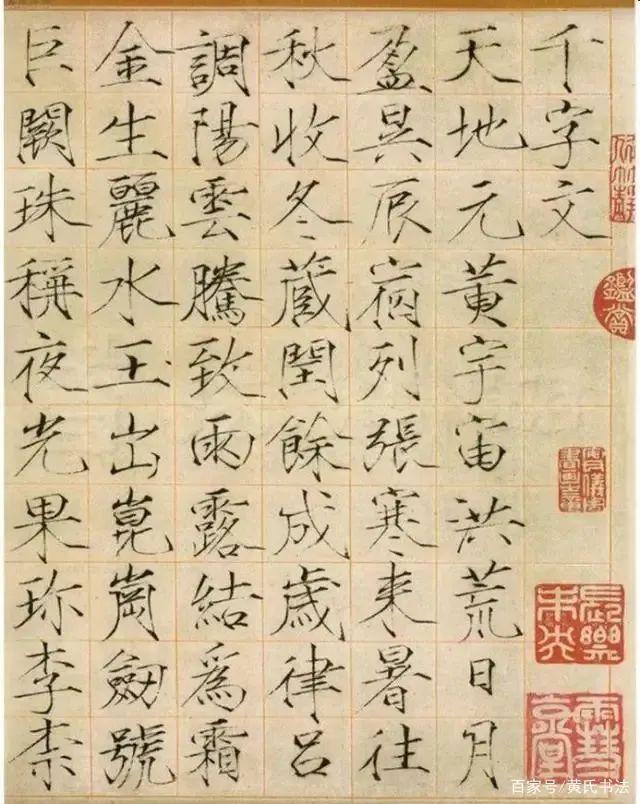 千字文
天地元黄宇宙洪荒日月
盈昃辰宿列張寒来暑往
秋收冬蔵閏餘成歳律吕
調陽雲騰致雨露結爲霜
金生麗水玉出崑崗劒號
巨闕珠稱夜光果珍李柰
鑑賞
長樂
未央
百家号/黄氏书法